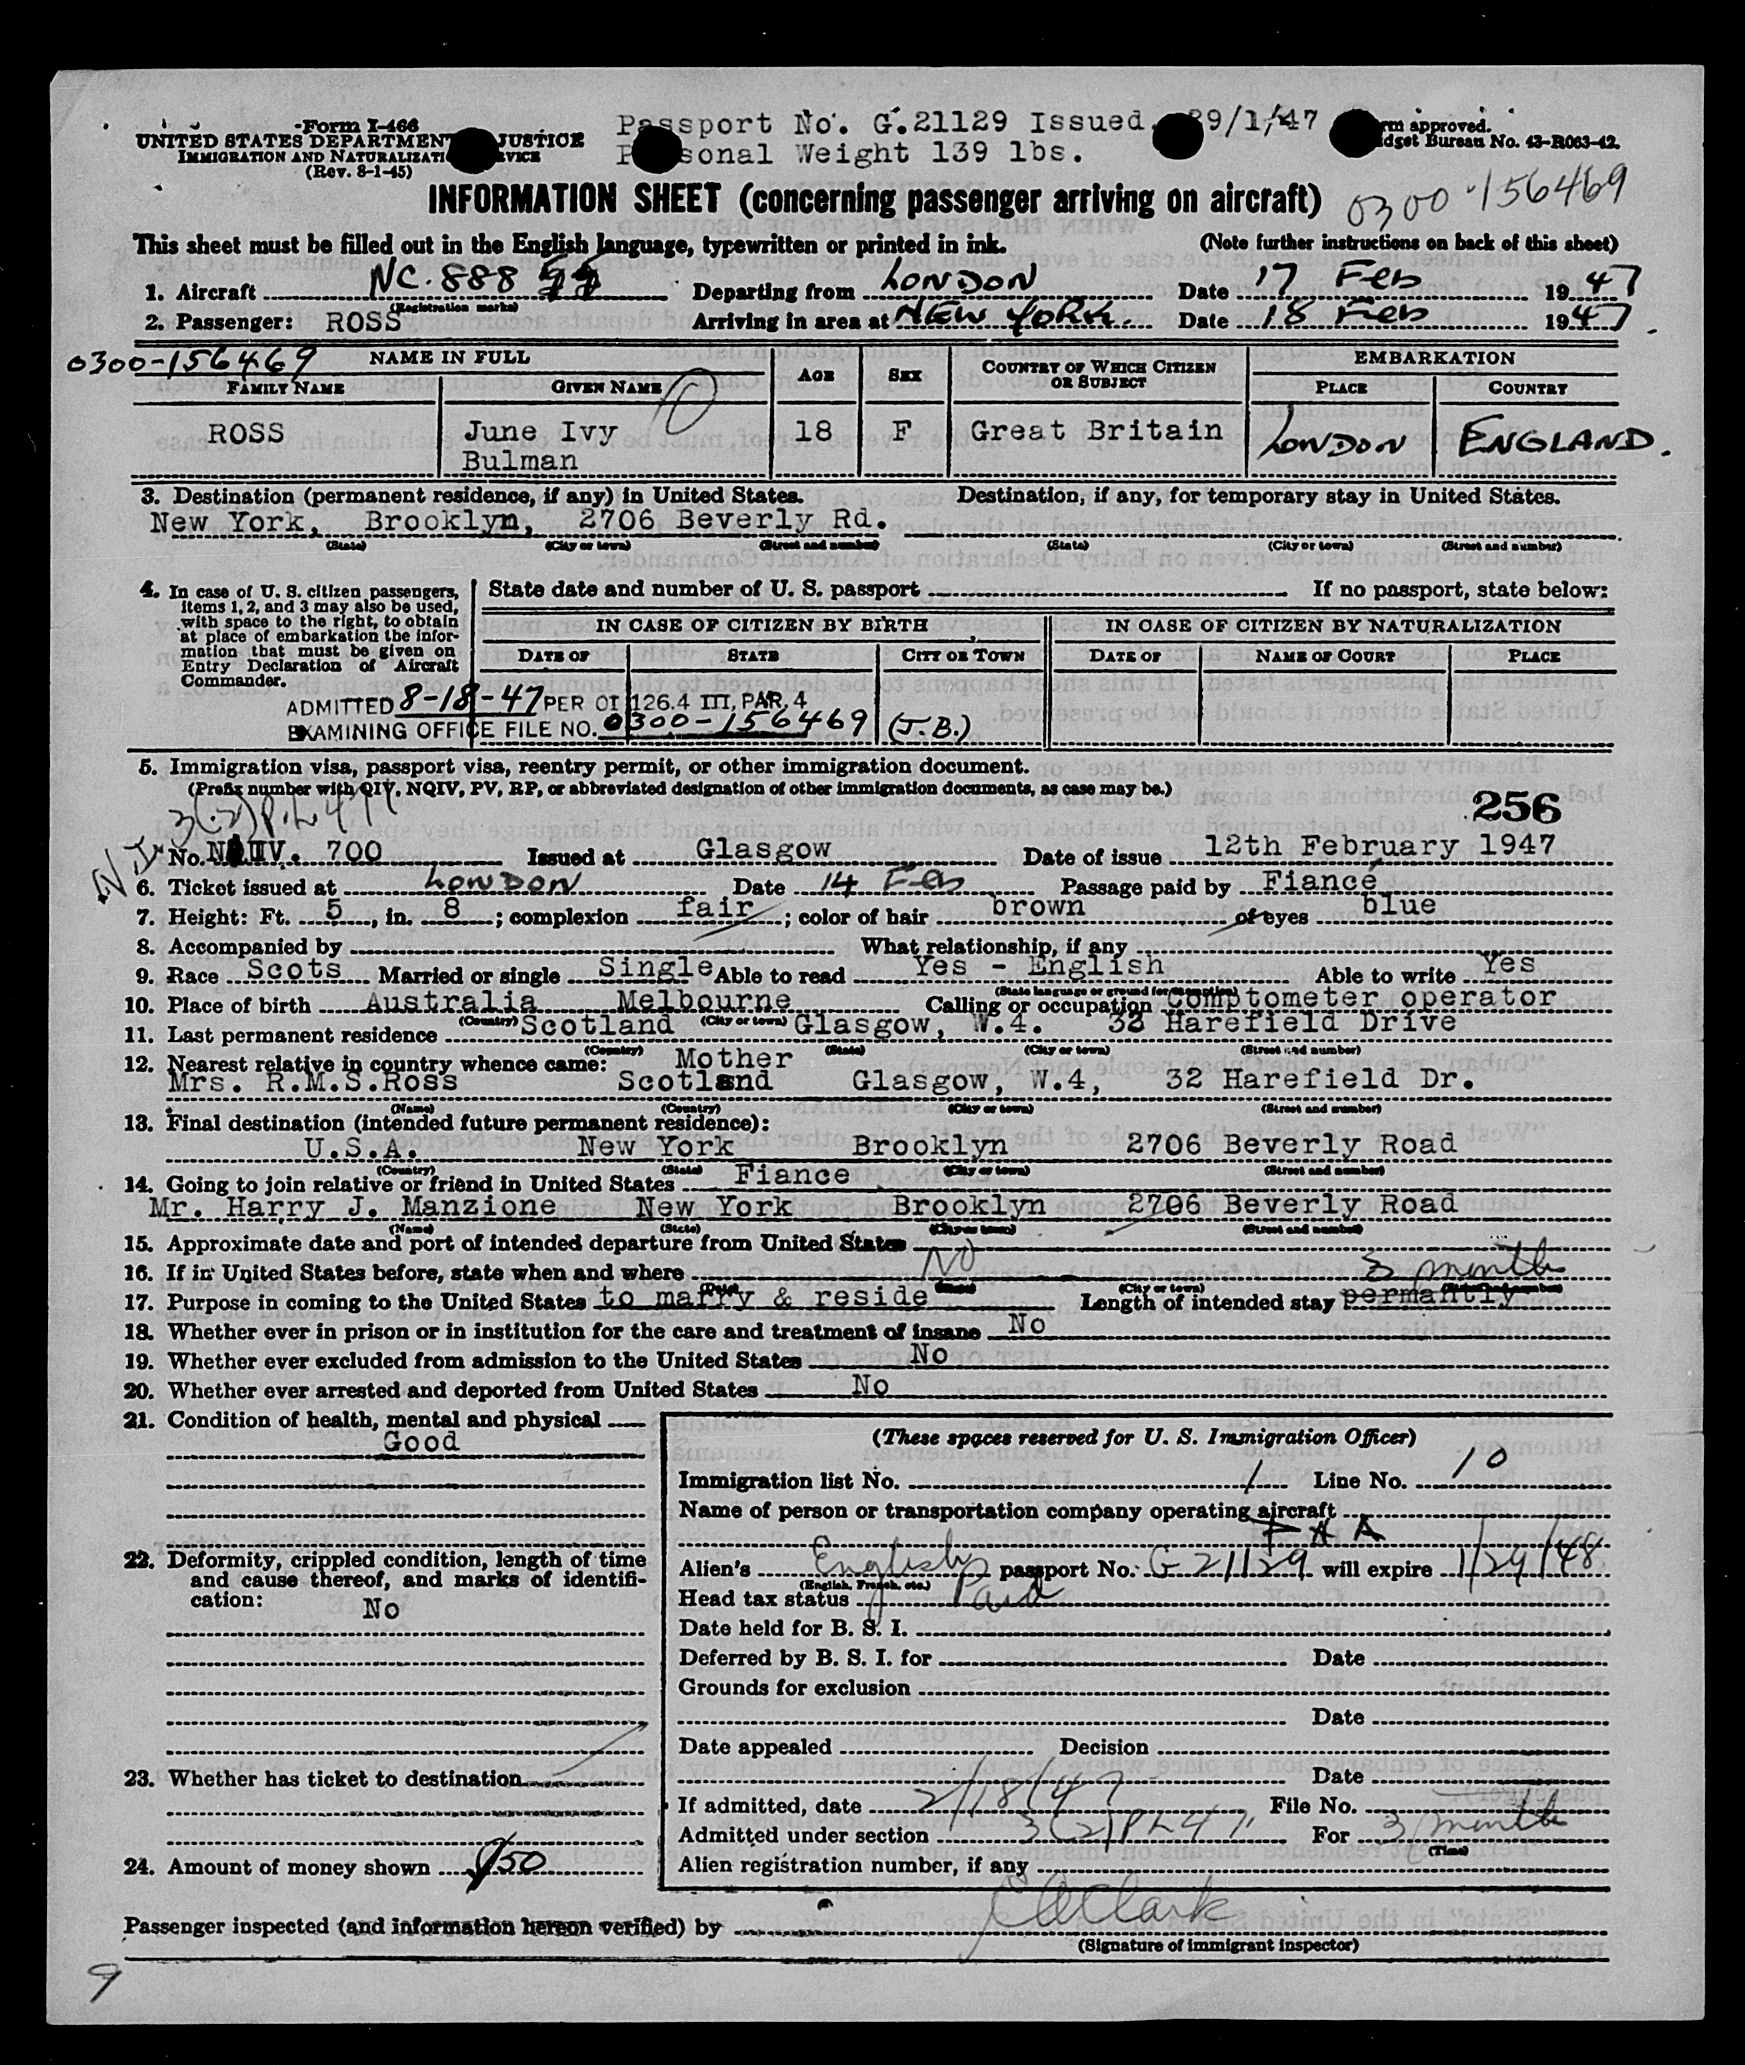 Form I-466
UNITED STATES DEPARTMENT JUSTICE
IMMIGRATION AND NATURALIZATI RVICE
(Rev. 8-1-45)
Passport No. G.21129 Issued. 29/1/47
P sonal Weight 139 lbs.
rm approved.
dget Bureau No. 43-R063-42.
INFORMATION SHEET (concerning passenger arriving on aircraft)
0300-156469
This sheet must be filled out in the English language, typewritten or printed in ink.
(Note further instructions on back of this sheet)
1. Aircraft NC. 888 Departing from LONDON Date 17 Feb 1947
(Registration marks)
2. Passenger: ROSS Arriving in area at NEW YORK. Date 18 Feb 1947
0300-156469 NAME IN FULL AGE SEX COUNTRY OF WHICH CITIZEN OR SUBJECT EMBARKATION
FAMILY NAME GIVEN NAME PLACE COUNTRY
10
ROSS June Ivy Bulman 18 F Great Britain LONDON ENGLAND.
3. Destination (permanent residence, if any) in United States. Destination, if any, for temporary stay in United States.
New York, Brooklyn, 2706 Beverly Rd.
(State) (City or town) (Street and number) (State) (City or town) (Street and number)
4. In case of U. S. citizen passengers, items 1, 2, and 3 may also be used, with space to the right, to obtain at place of embarkation the information that must be given on Entry Declaration of Aircraft Commander.
State date and number of U. S. passport If no passport, state below:
IN CASE OF CITIZEN BY BIRTH IN CASE OF CITIZEN BY NATURALIZATION
DATE OF STATE CITY OR TOWN DATE OF NAME OF COURT PLACE
ADMITTED 8-18-47 PER OI 126.4 III, PAR. 4
EXAMINING OFFICE FILE NO. 0300-156469 (J.B.)
5. Immigration visa, passport visa, reentry permit, or other immigration document.
(Prefix number with QIV, NQIV, PV, RP, or abbreviated designation of other immigration documents, as case may be.)
3(2) P.L 471
256
No. NQIV. 700 Issued at Glasgow Date of issue 12th February 1947
6. Ticket issued at LONDON Date 14 Feb Passage paid by Fiancé
7. Height: Ft. 5, in. 8; complexion fair; color of hair brown of eyes blue
8. Accompanied by What relationship, if any
9. Race Scots Married or single Single Able to read Yes - English Able to write Yes
(State language or ground for exemption)
10. Place of birth Australia Melbourne Calling or occupation Comptometer operator
(Country) (City or town)
11. Last permanent residence Scotland Glasgow, W.4. 32 Harefield Drive
(Country) (State) (City or town) (Street and number)
12. Nearest relative in country whence came: Mother
Mrs. R.M.S.Ross Scotland Glasgow, W.4, 32 Harefield Dr.
(Name) (Country) (City or town) (Street and number)
13. Final destination (intended future permanent residence):
U.S.A. New York Brooklyn 2706 Beverly Road
(Country) (State) (City or town) (Street and number)
14. Going to join relative or friend in United States Fiance
Mr. Harry J. Manzione New York Brooklyn 2706 Beverly Road
(Name) (State) (City or town) (Street and number)
15. Approximate date and port of intended departure from United States
16. If in United States before, state when and where No 3 months
(City or town)
17. Purpose in coming to the United States to marry & reside Length of intended stay permantly
18. Whether ever in prison or in institution for the care and treatment of insane No
19. Whether ever excluded from admission to the United States No
20. Whether ever arrested and deported from United States No
21. Condition of health, mental and physical
Good
22. Deformity, crippled condition, length of time and cause thereof, and marks of identification:
No
23. Whether has ticket to destination
24. Amount of money shown $50
(These spaces reserved for U. S. Immigration Officer)
Immigration list No. 1 Line No. 10
Name of person or transportation company operating aircraft
Alien's English passport No. G 21129 will expire 1/29/48
(English, French, etc.)
Head tax status Paid
Date held for B. S. I.
Deferred by B. S. I. for Date
Grounds for exclusion
Date
Date appealed Decision
Date
If admitted, date 2/18/47 File No.
Admitted under section 3(2) PL 471 For 3 months
(Time)
Alien registration number, if any
Passenger inspected (and information hereon verified) by Clark
(Signature of immigrant inspector)
9